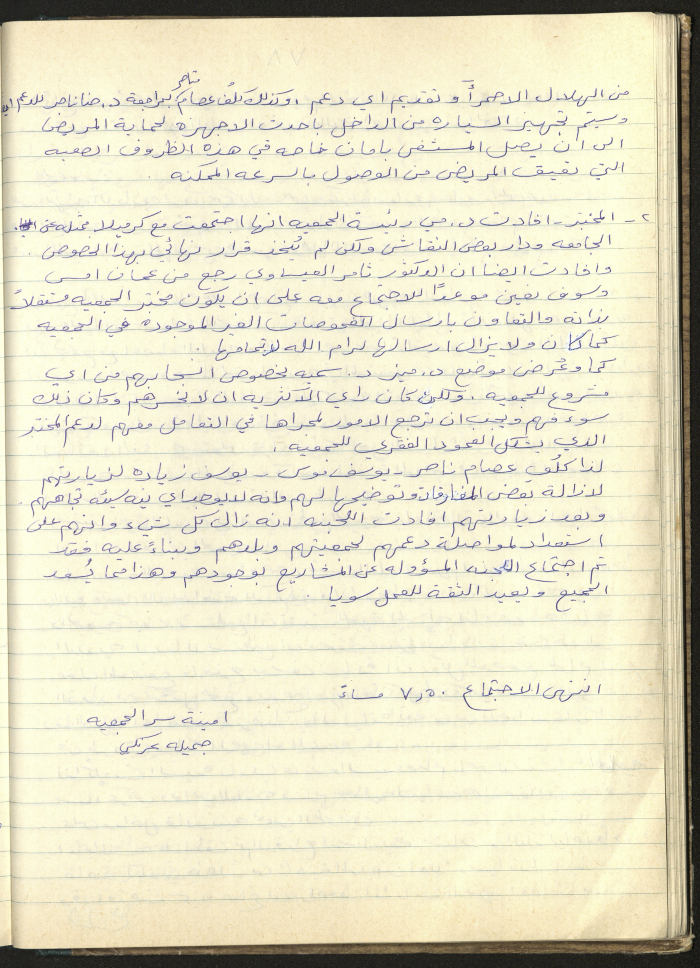 ناصر
من الهلال الاحمر و تقديم اي دعم ، وكذلك كلف عصام بمراجعة د. حنا ناصر للدعم
وسيتم تجهيز السياره من الداخل باحدث الاجهزه لحماية المريض
الى ان يصل المستشفى بامان خاصه في هذه الظروف الصعبه
التي تعيق المريض من الوصول بالسرعه الممكنه .
٢ - المختبر - افادت د. مي رئيسة الجمعيه انها اجتمعت مع كرميلا ممثله عن
الجامعه ودار بعض النقاش ولكن لم يُتخذ قرار نهائي بهذا الخصوص .
وافادت ايضا ان الدكتور تامر العيساوي رجع من عمان امس
وسوف نعين موعداً للاجتماع معه على ان يكون مختبر الجمعيه مستقلاً
بذاته والتعاون بارسال الفحوصات الغير الموجوده في الجمعيه
كما كان ولا يزال ارسالها لرام الله لاتمامها .
كما وعُرض موضع د. ميز د. سميه بخصوص انسحابهم من اي
مشروع للجمعيه . ولكن كان راي الاكثريه ان لا نخسرهم وكان ذلك
سوء فهم ويجب ان ترجع الامور لمجراها في التعامل معهم لدعم المختبر
الذي يشكل العمود الفقري للجمعيه .
لذا كلف عصام ناصر - يوسف نوس - يوسف زياده لزيارتهم
لازالة بعض المفارقات وتوضيحها لهم وانه لا يوجد اي نيه سيئه تجاههم .
وبعد زيارتهم افادت اللجنه انه زال كل شيء وانهم على
استعداد لمواصلة دعمهم لجمعيتهم وبلدهم وبناءً عليه فقد
تم اجتماع اللجنه المسؤوله عن المشاريع بوجودهم وهذا مما يُسعد
الجميع ويعيد الثقة للعمل سويا .
انتهى الاجتماع ٧٫٥٠ مساءً
امينة سر الجمعيه
جميله عرنكي